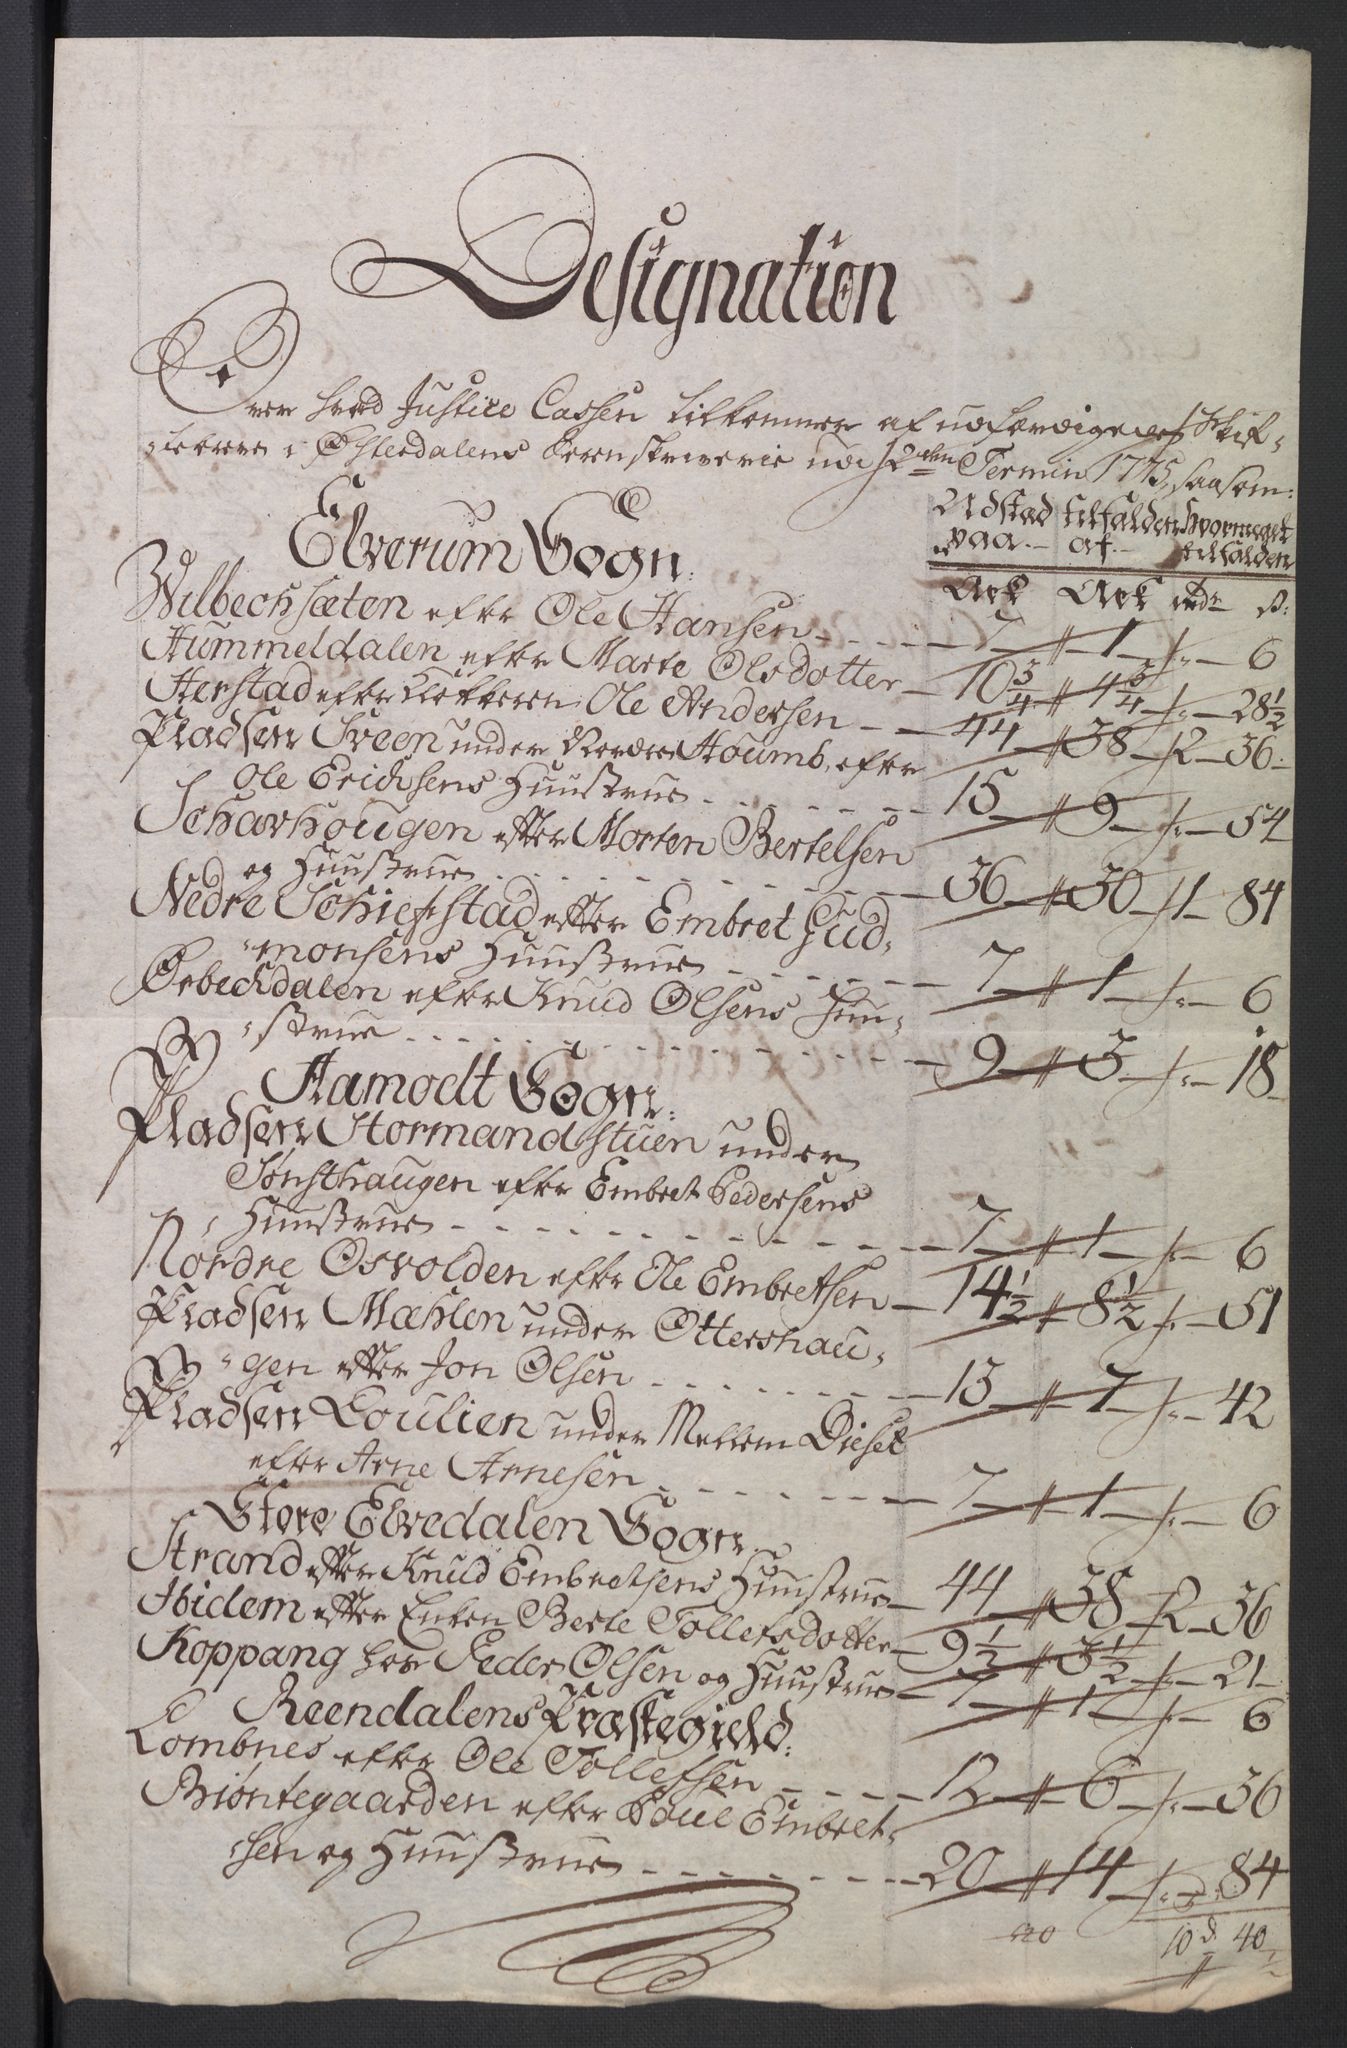 Designation
Over hvad Justice Cassen tilkommer af udfærdigede Skif-
-tebreve i Østerdalens Sorenskriverie udi 2den Termin 1775, saasom:
Udstæd tilfalden hvormeget
paa.- af.- tilfalden
Elverum Sogn.
Ark Ark rdr ß:
Wilbechsæten efter Ole Hansen - - - - 7 " 1 " - 6
Hummeldalen efter Marte Olsdotter - 10 3/4 " 4 3/4 " - 28 1/2
Herstad efter Klokkeren Ole Andersen - - 44 " 38 " 2 - 36 -
Pladsen Sveen under Nordre Houmb, efter
Ole Erichsens Huustrue - - - - - - - 15 " 9 " - 54
Scharhougen efter Morten Bertelsen
og Huustrue - - - - - - - - - - 36 " 30 " 1 84
Nedre Schiefstad efter Embret Gud-
-monsens Huustrue - - - - - - 7 " 1 " - 6
Ørbechdalen efter Knud Olsens Huu-
-strue - - - - - - - - - - - - 9 " 3 " - 18
Aamodt Sogn:
Pladsen Stormandstuen under
Sønsthaugen efter Embret Pedersens
Huustrue - - - - - - - - - - 7 " 1 " - 6
Nordre Osvolden efter Ole Embretsen - 14 1/2 " 8 1/2 " - 51
Pladsen Mæhlen under Ottershau-
-gen efter Jon Olsen - - - - - - - - 13 " 7 " - 42
Pladsen Loulien under Mellem Diset
efter Arne Arnesen - - - - - - - 7 " 1 " - 6
Store Elvedalen Sogn.
Strand efter Knud Embretsens Huustrue - 44 " 38 " 2 - 36
Ibidem efter Enken Berte Tollefsdotter - 9 1/2 " 3 1/2 " - 21 -
Koppang hos Peder Olsen og Huustrue - 7 " 1 " - 6
Reendalens Præstegield:
Lombnes efter Ole Tollefsen - - - - 12 " 6 " - 36
Biøntegaarden efter Poul Embret-
-sen og Huustrue - - - - - - - - 20 " 14 " - 84
10 d. 40